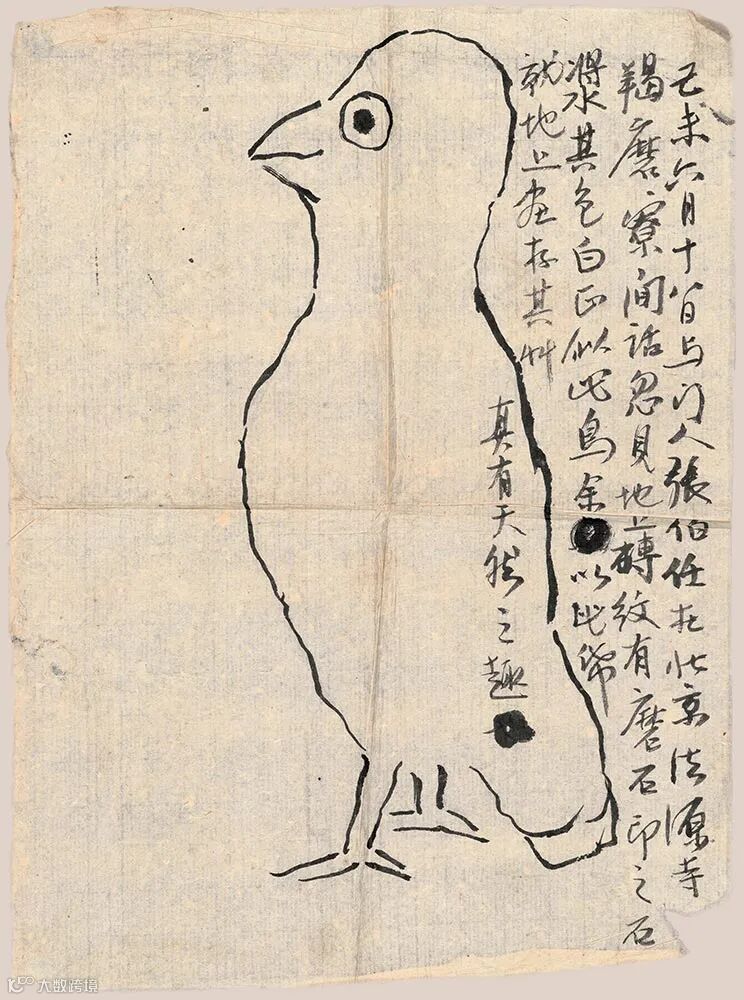 己未六月十八日与门人張伯任在北京法源寺
羯磨寮间话忽見地上磚紋有磨石印之石
漿水其色白正似此鳥余以此紙
就地上画存其艸
真有天然之趣
大数跨境